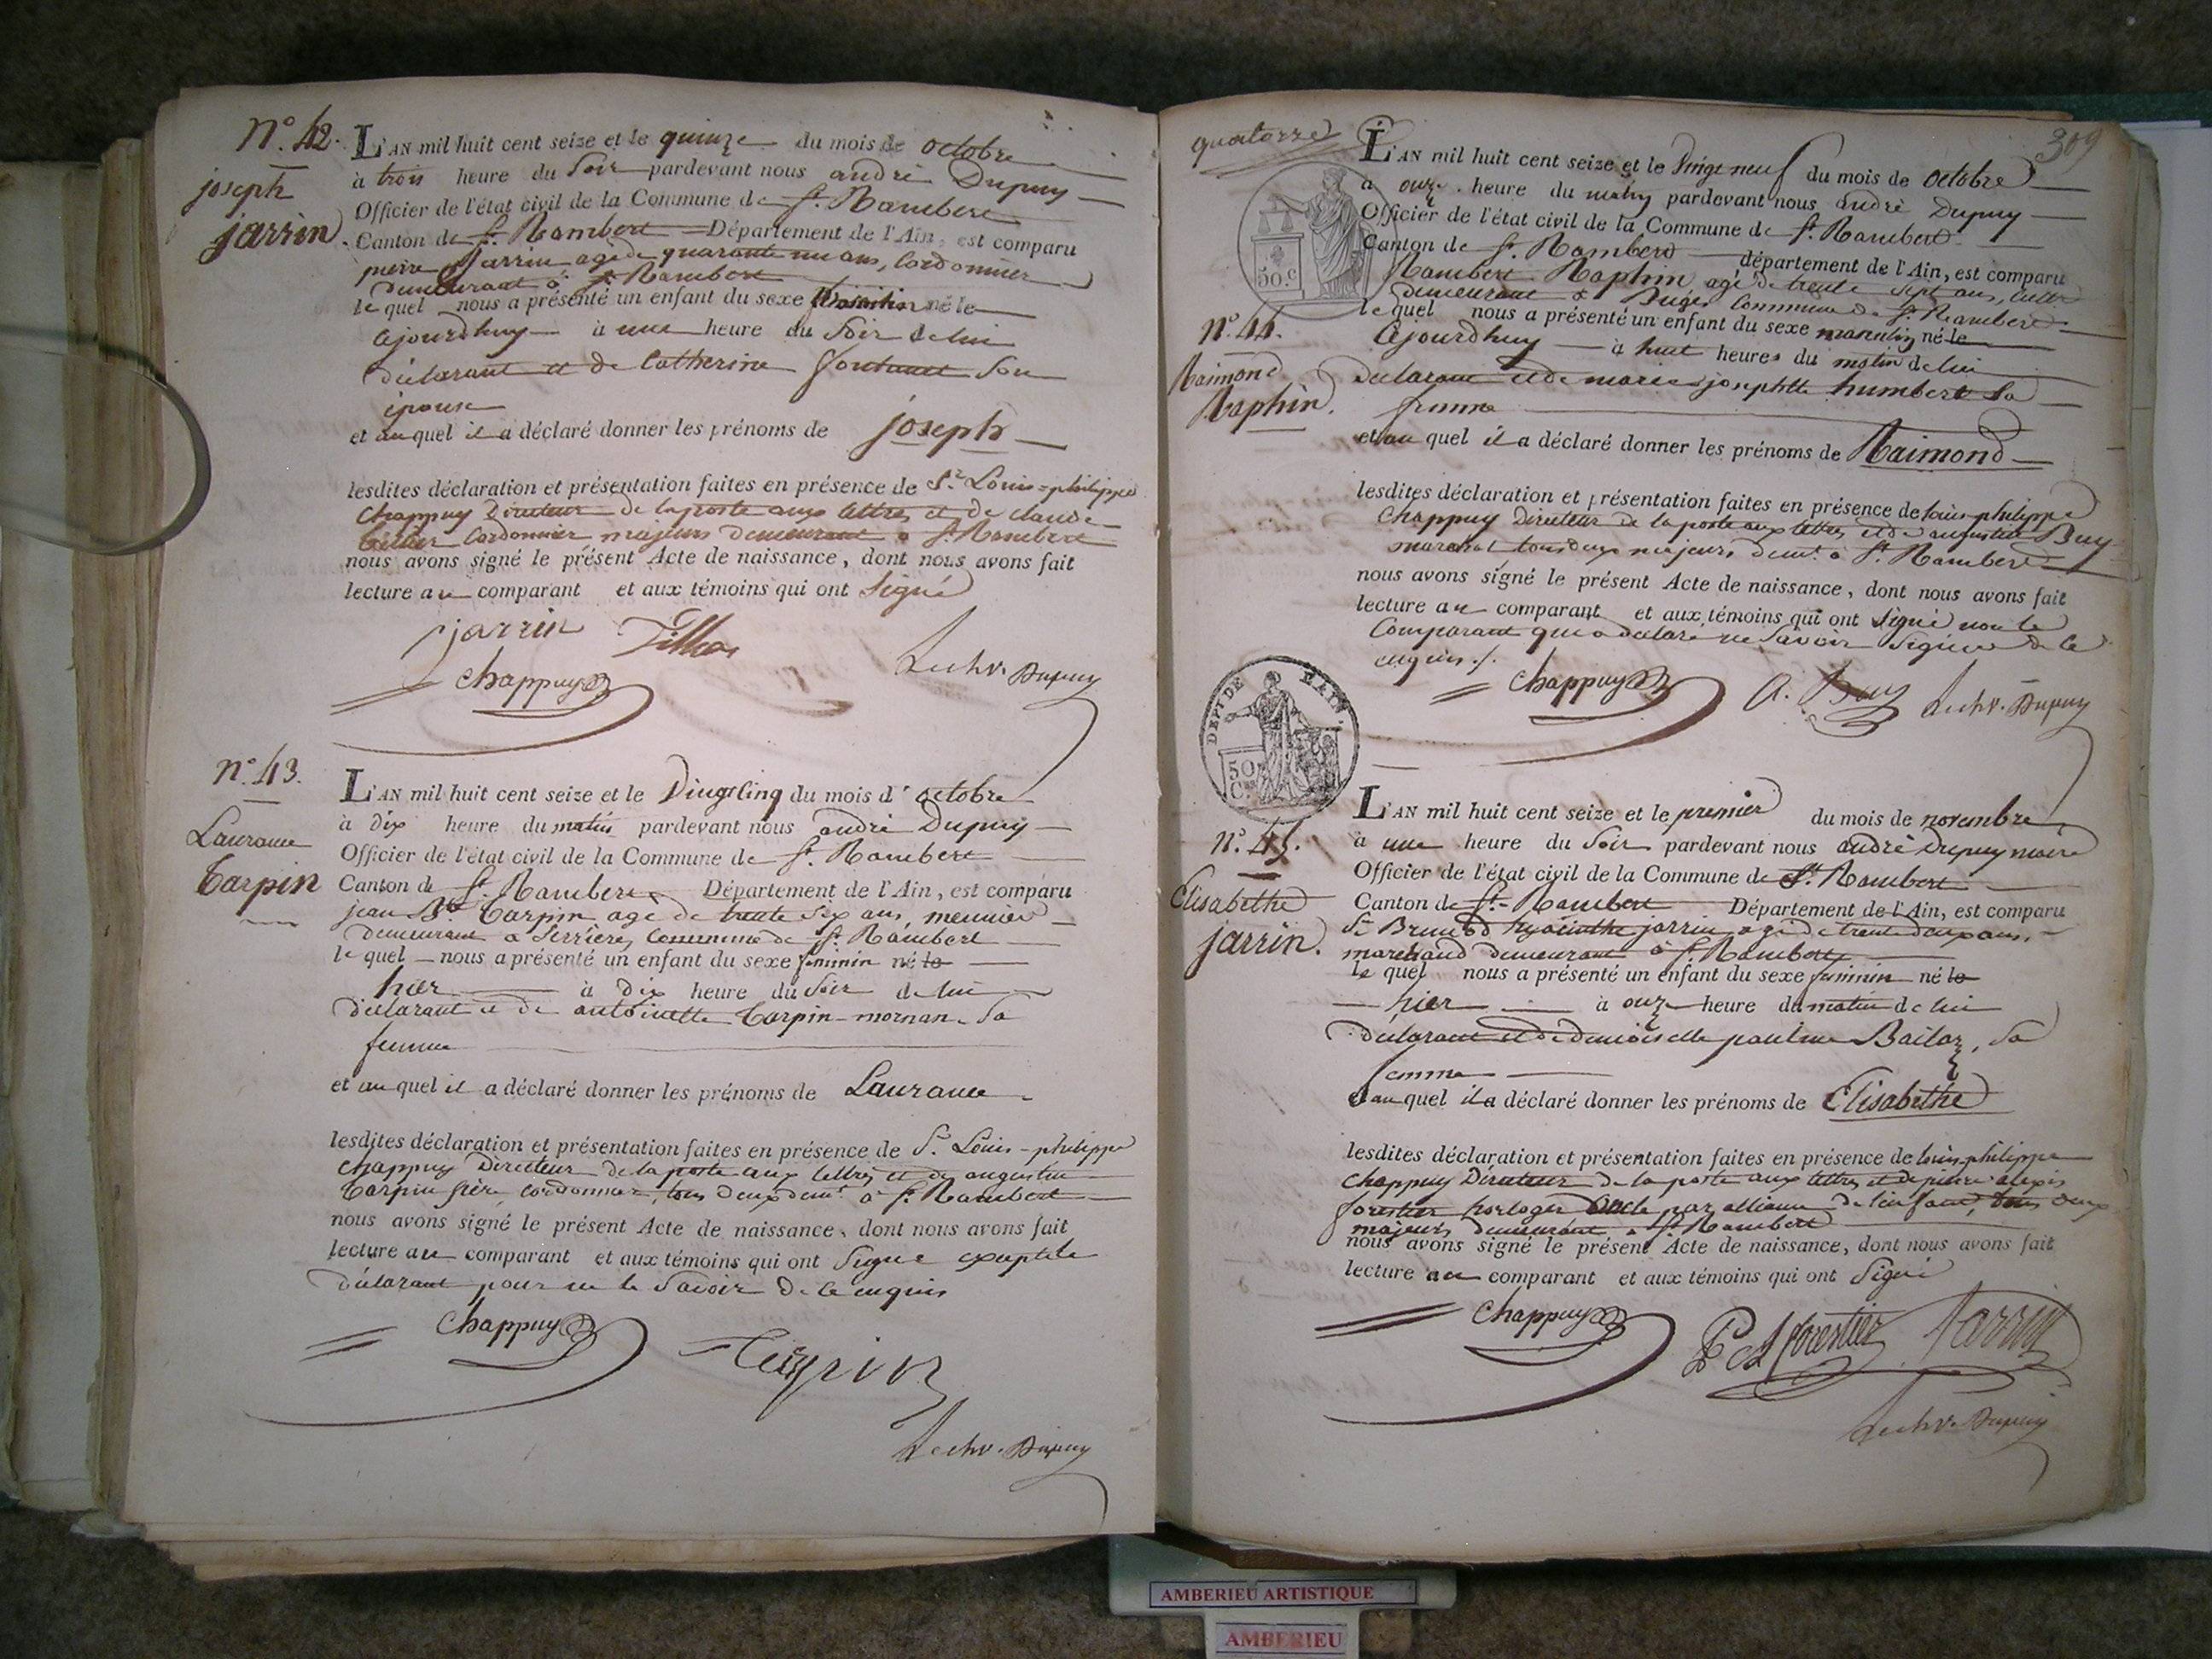 N.° 42.
joseph
jarrin
L'AN mil huit cent seize et le quinze du mois de octobre
à trois heure du Soir pardevant nous andré Dupuy
Officier de l'état civil de la Commune de St. Rambert
Canton de St. Rambert Département de l'Ain, est comparu
pierre Jarrin agé de quarante un ans, Cordonnier
demeurant à St Rambert
le quel nous a présenté un enfant du sexe masculin né le
ajourdhuy à une heure du Soir de lui
déclarant et de Catherine son
épouse
et au quel il a déclaré donner les prénoms de joseph
lesdites déclaration et présentation faites en présence de Sr. Louis-philippe
Chappuy Directeur de la poste aux lettres et de claude
Cordonnier majeurs demeurant a St. Rambert
nous avons signé le présent Acte de naissance, dont nous avons fait
lecture au comparant et aux témoins qui ont Signé
jarrin
Chappuy
Dupuy
n.° 43.
Laurance
Tarpin
L'AN mil huit cent seize et le Vingt Cinq du mois d' octobre
à dix heure du matin pardevant nous andré Dupuy
Officier de l'état civil de la Commune de St. Rambert
Canton de St. Rambert Département de l'Ain, est comparu
jean Bte Tarpin agé de trente six ans, meunier
demeurant a Serrieres Commune de St. Rambert
le quel nous a présenté un enfant du sexe feminin né le
hier à dix heure du Soir de lui
déclarant et de antoinette Tarpin-mornan Sa
femme
et au quel il a déclaré donner les prénoms de Laurance
lesdites déclaration et présentation faites en présence de Sr. Louis-philippe
Chappuy Directeur de la poste aux lettres et de augustin
Tarpin frère, cordonnier, tous deux demt. à St. Rambert
nous avons signé le présent Acte de naissance, dont nous avons fait
lecture au comparant et aux témoins qui ont Signé excepté le
déclarant pour ne le Savoir de ce enquis
Chappuy
Tarpin
Dupuy
quatorze
309
50.c
L'AN mil huit cent seize et le Vingt neuf du mois de octobre
à onze heure du matin pardevant nous andré Dupuy
Officier de l'état civil de la Commune de St. Rambert
Canton de St. Rambert département de l'Ain, est comparu
Rambert Raphin agé de trente sept ans,
demeurant à Commune de St. Rambert
le quel nous a présenté un enfant du sexe masculin né le
n.° 44.
Raimond
Raphin.
ajourdhuy à huit heures du matin de lui
déclarant et de marie josephte humbert Sa
femme
et au quel il a déclaré donner les prénoms de Raimond
lesdites déclaration et présentation faites en présence de louis philippe
Chappuy Directeur de la poste aux lettres et de augustin Buy
tous deux majeurs demt. à St. Rambert
nous avons signé le présent Acte de naissance, dont nous avons fait
lecture au comparant et aux témoins qui ont signé non le
Comparant qui a déclaré ne Savoir Signer de ce
enquis ./.
Chappuy
A. Buy
Dupuy
DEPT DE L'AIN
50
C.
n.° 45.
Elisabethe
jarrin.
L'AN mil huit cent seize et le premier du mois de novembre
à une heure du Soir pardevant nous andré Dupuy maire
Officier de l'état civil de la Commune de St. Rambert
Canton de St. Rambert Département de l'Ain, est comparu
Sr. Bruno hyacinthe jarrin agé de trente deux ans,
marchand demeurant à St. Rambert
le quel nous a présenté un enfant du sexe feminin né le
hier à onze heure du matin de lui
déclarant et de demoiselle pauline Sa
femme
et au quel il a déclaré donner les prénoms de Elisabethe
lesdites déclaration et présentation faites en présence de louis philippe
Chappuy Directeur de la poste aux lettres et de pierre alexis
forestier horloger oncle par alliance de l'enfant, tous deux
majeurs demeurant à St. Rambert
nous avons signé le présent Acte de naissance, dont nous avons fait
lecture au comparant et aux témoins qui ont Signé
Chappuy
P A forestier
Jarrin
Dupuy
AMBERIEU ARTISTIQUE
AMBERIEU